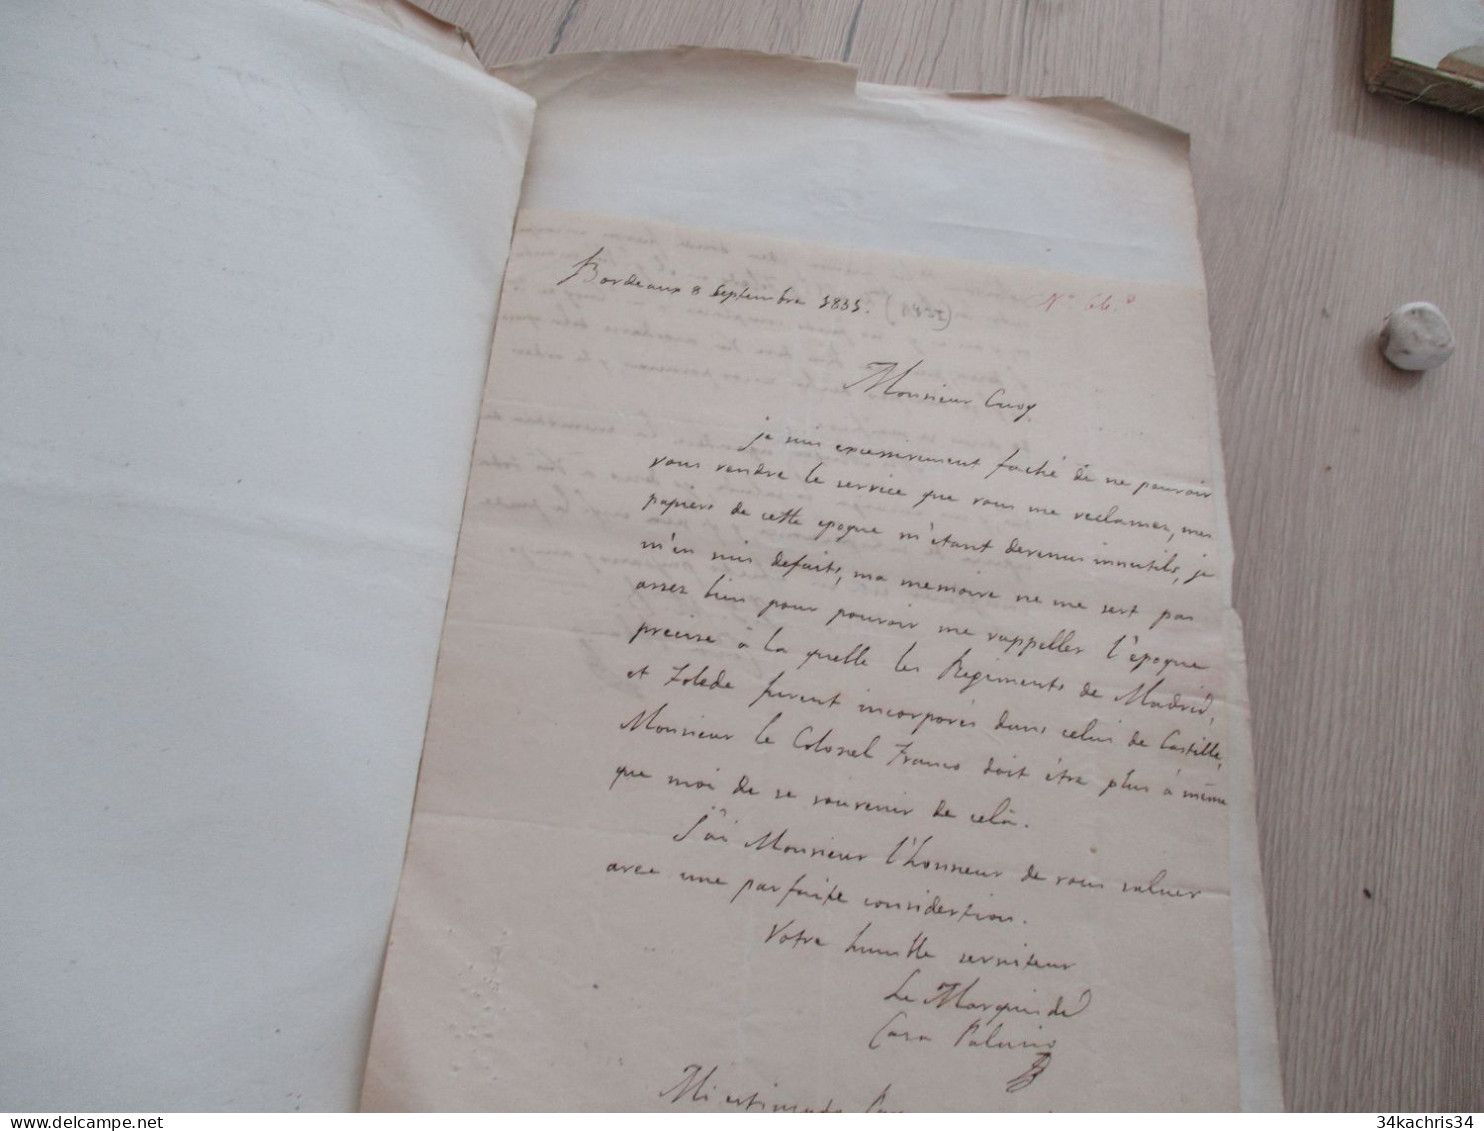 Bordeaux 8 Septembre 1835.
N° 66.
Monsieur Cuoy
je suis excessivement faché de ne pouvoir
vous rendre le service que vous me reclamez, mes
papiers de cette epoque m'étant devenus innutils, je
m'en suis defaits, ma memoire ne me sert pas
assez bien pour pouvoir me rappeller l'époque
precise à la quelle les Régiments de Madrid,
et Tolede furent incorporés dans celui de Castille,
Monsieur le Colonel Franco doit être plus à même
que moi de se souvenir de celà.
J'ai Monsieur l'honneur de vous saluer
avec une parfaite considertion.
Votre humble serviteur
Le Marquis de
Casa Palacio
Mi estimado
34kachris34